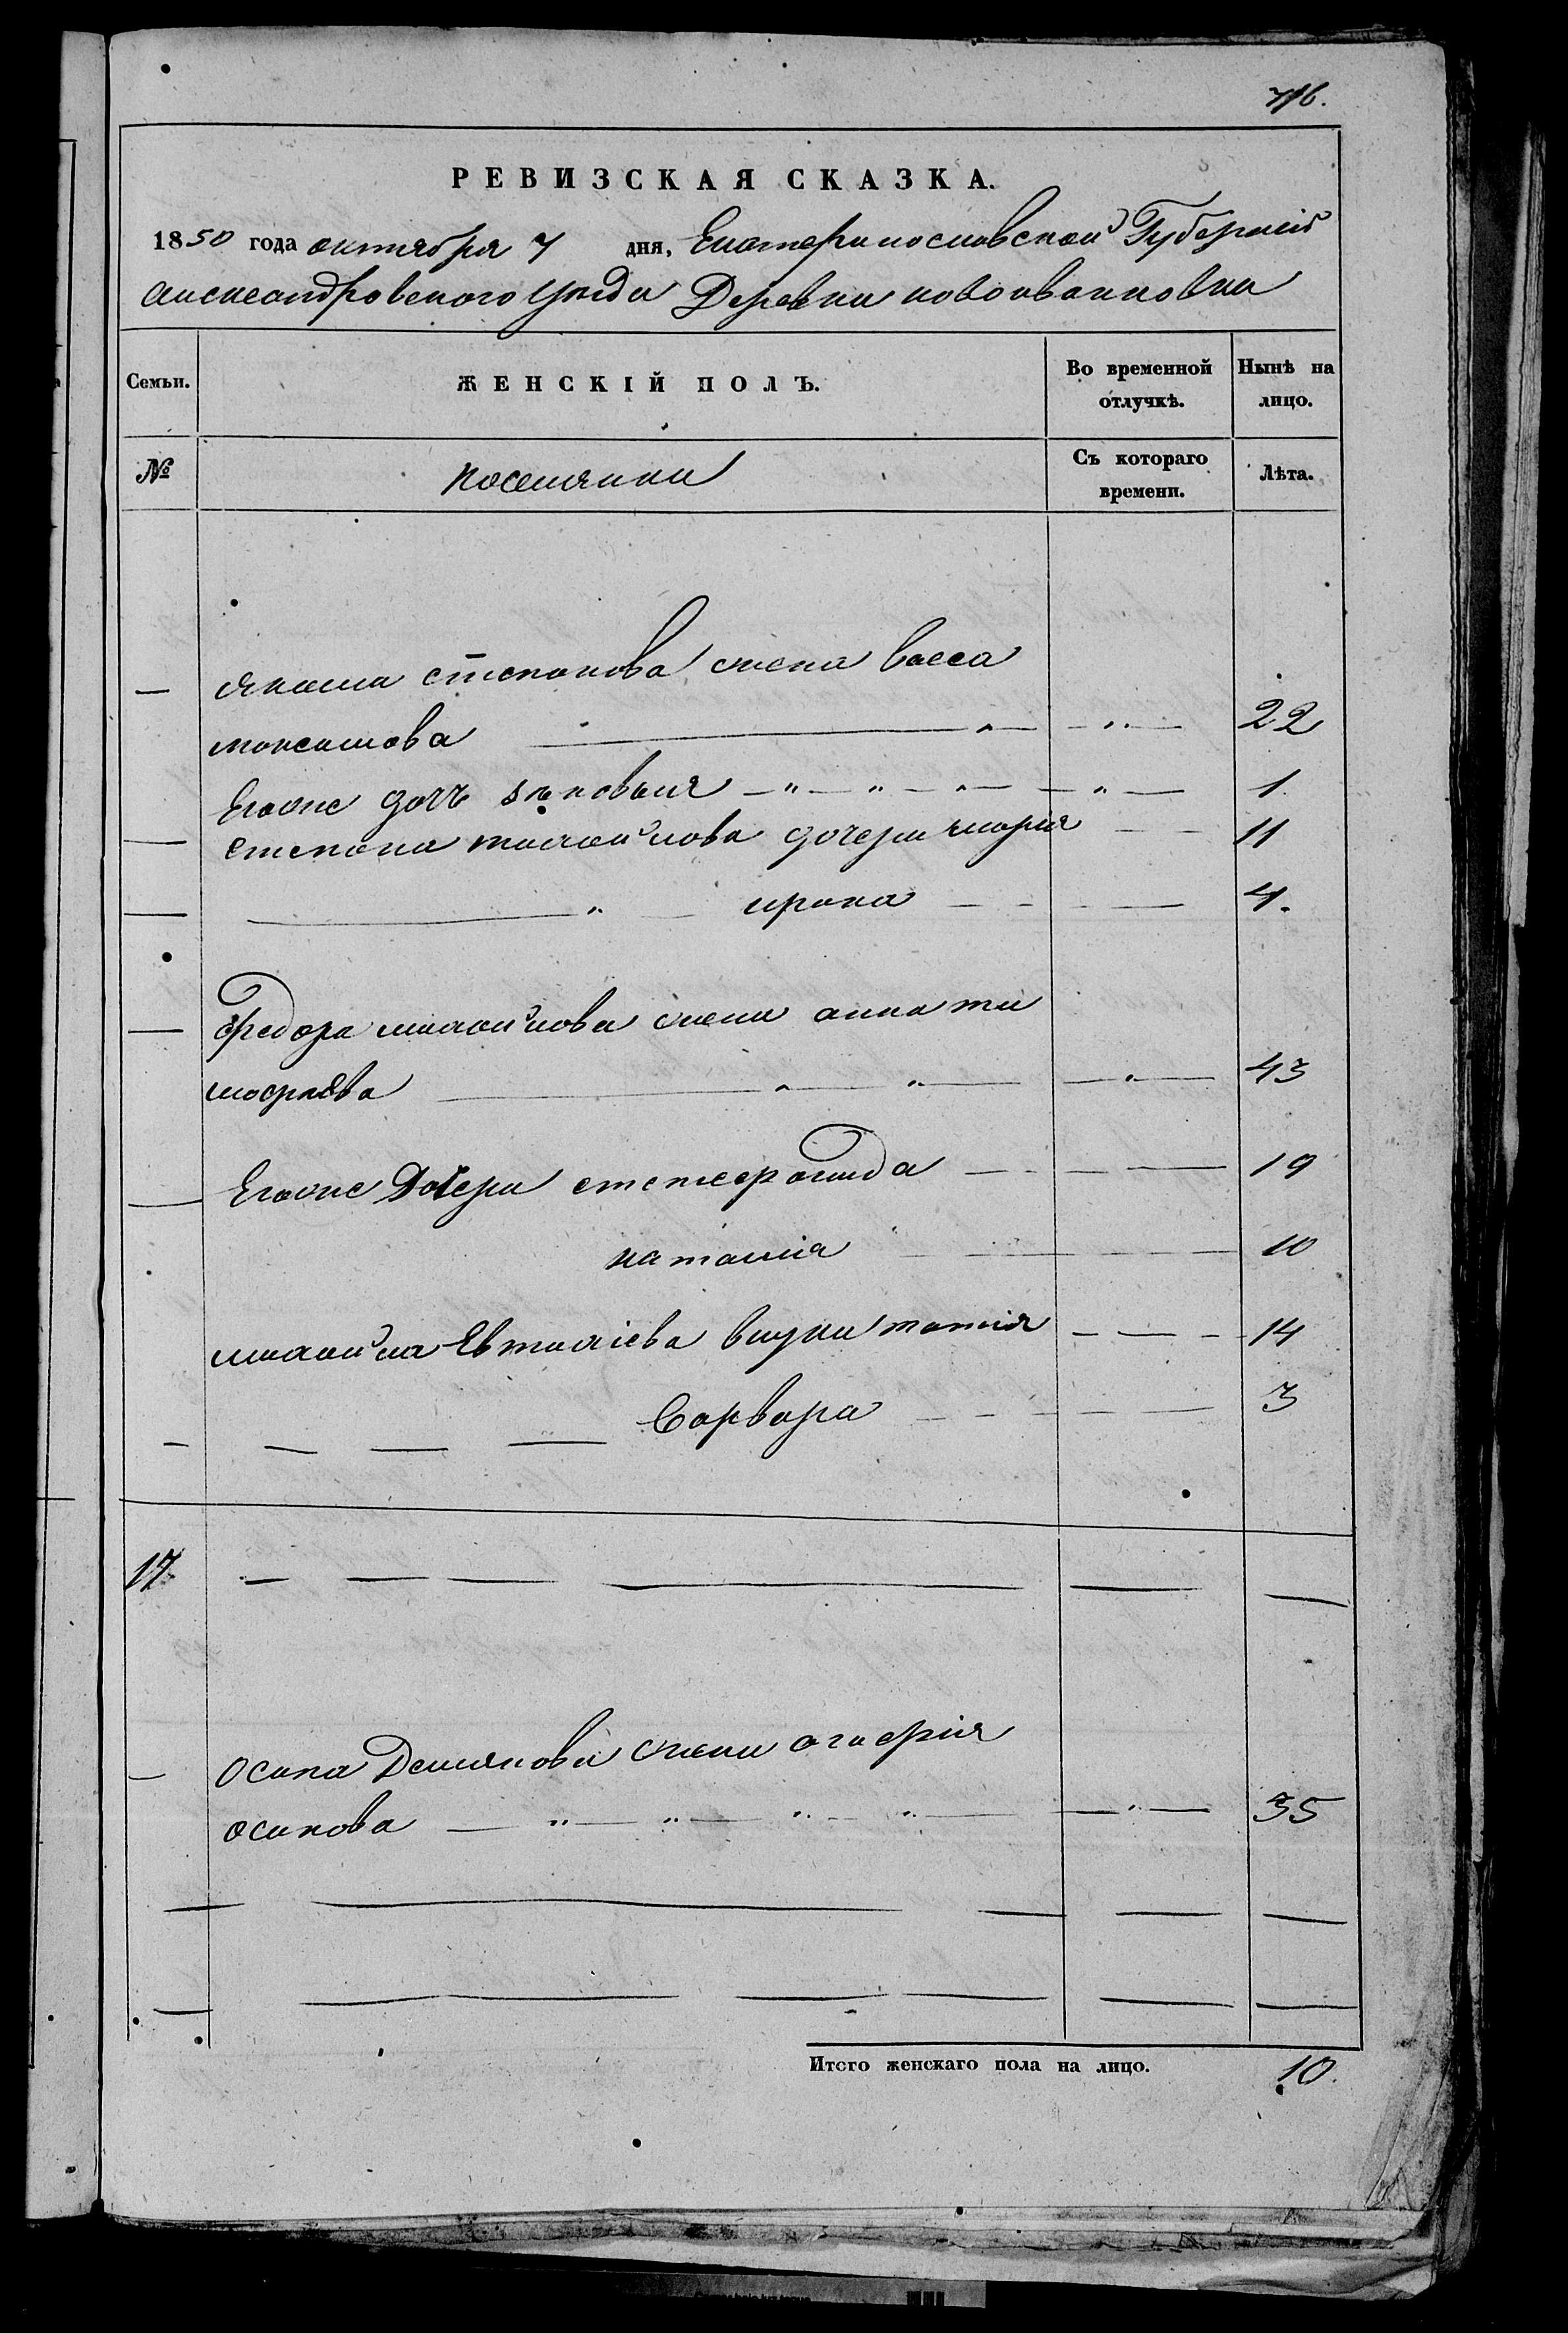 716.
РЕВИЗСКАЯ СКАЗКА.
1850 года октября 7 дня, Екатеринославской Губерніи
александровскаго уезда Деревни новоивановки
Семьи. ЖЕНСКІЙ ПОЛЪ. Во временной отлучкѣ. Нынѣ на лицо.
№ поселянки Съ котораго времени. Лѣта.
— якова степанова жена васса
максимова — " — — " — 22
Егоже дочь — " — " — " — " — 1
— степана михайлова дочери марія — — 11
— — " — ирина — — — 4.
— Федора михайлова жена анна ти
мофѣева — " — " — — " — 43
— Егоже Дочери степефанида — — — 19
наталія — — — 10
михайла Евтихіева внуки татия — — — 14
— — — — Варвара — — — 3
17 — — — — — —
— Осипа Демянова жена агафія
осипова — " — " — " — " — — " — 35
— — — — —
— — — — — — —
Итого женскаго пола на лицо. 10.